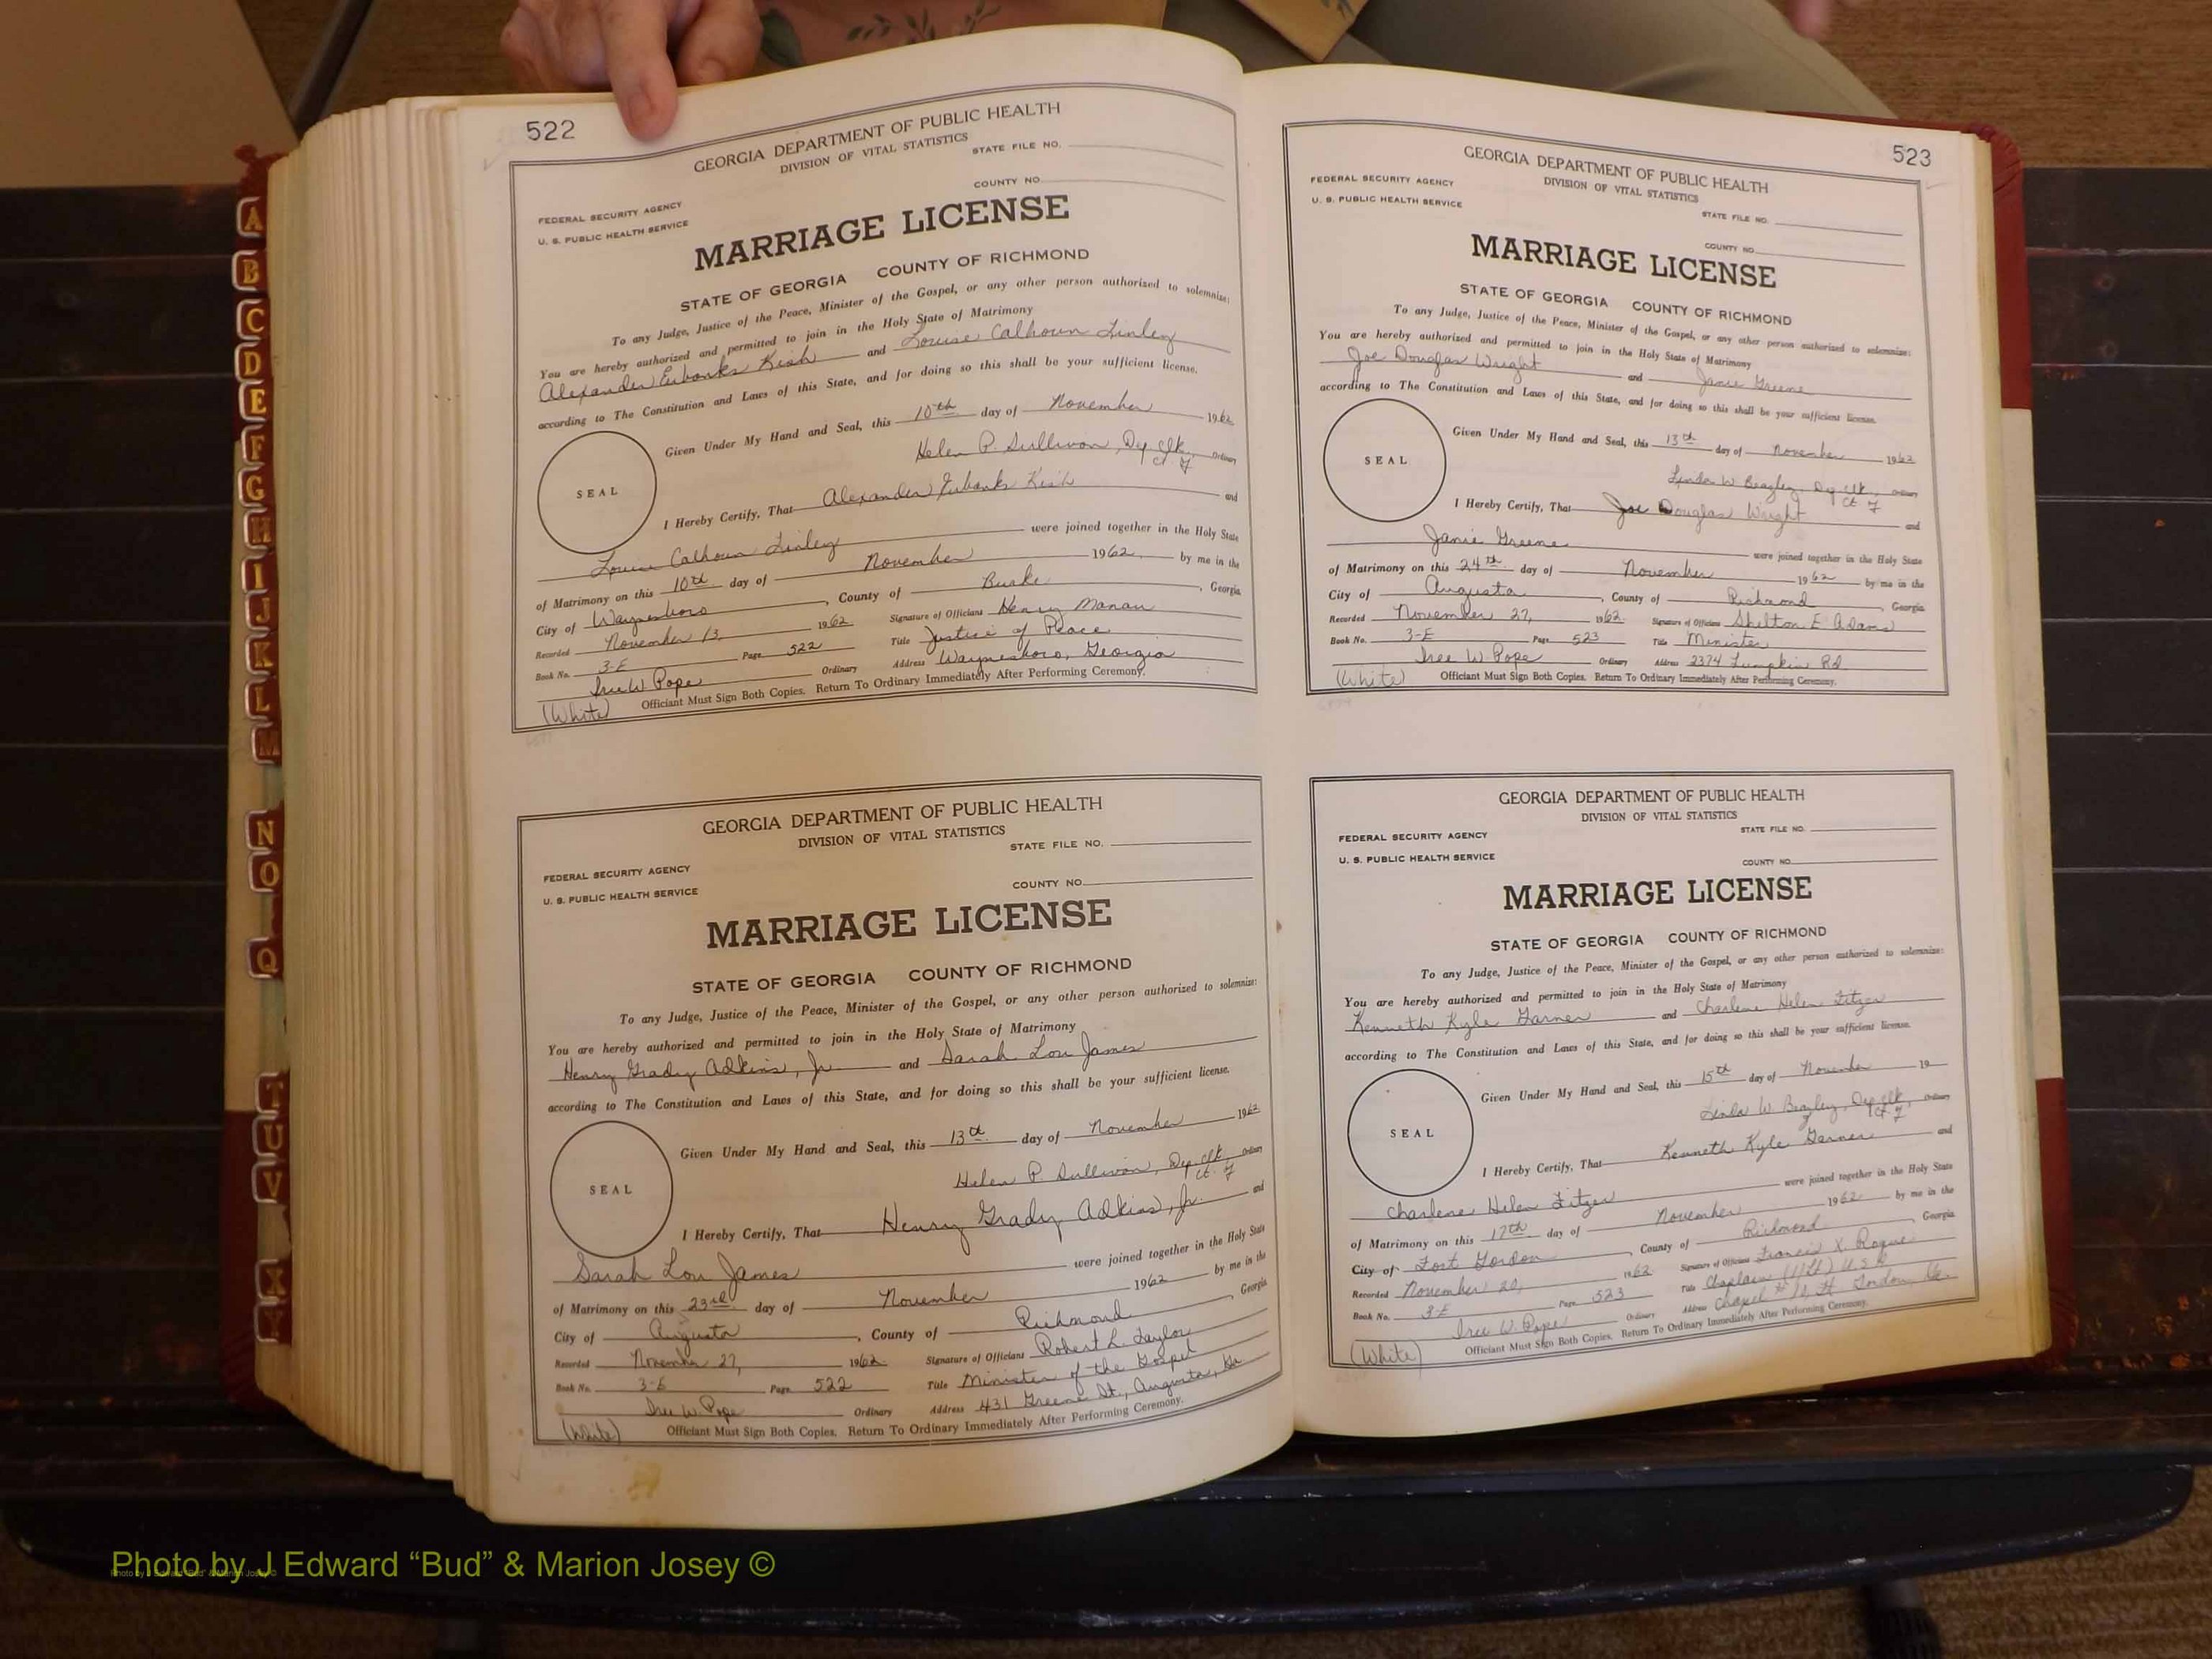 522
GEORGIA DEPARTMENT OF PUBLIC HEALTH
DIVISION OF VITAL STATISTICS
STATE FILE NO.
COUNTY NO.
FEDERAL SECURITY AGENCY
U. S. PUBLIC HEALTH SERVICE
MARRIAGE LICENSE
STATE OF GEORGIA COUNTY OF RICHMOND
To any Judge, Justice of the Peace, Minister of the Gospel, or any other person authorized to solemnize:
You are hereby authorized and permitted to join in the Holy State of Matrimony
Alexander Eubanks Kish and Louise Calhoun Linley
according to The Constitution and Laws of this State, and for doing so this shall be your sufficient license.
Given Under My Hand and Seal, this 10th day of November 1962
Helen P. Sullivan, Dep. Clk. Ordinary
SEAL
I Hereby Certify, That Alexander Eubanks Kish and
Louise Calhoun Linley were joined together in the Holy State
of Matrimony on this 10th day of November 1962 by me in the
City of Waynesboro, County of Burke, Georgia
Recorded November 13, 1962 Signature of Officiant Henry
Book No. 3-E Page 522 Title Justice of Peace
Ordinary Address Waynesboro, Georgia
Officiant Must Sign Both Copies. Return To Ordinary Immediately After Performing Ceremony.
(White)
GEORGIA DEPARTMENT OF PUBLIC HEALTH
DIVISION OF VITAL STATISTICS
STATE FILE NO.
FEDERAL SECURITY AGENCY
COUNTY NO.
U. S. PUBLIC HEALTH SERVICE
MARRIAGE LICENSE
STATE OF GEORGIA COUNTY OF RICHMOND
To any Judge, Justice of the Peace, Minister of the Gospel, or any other person authorized to solemnize:
You are hereby authorized and permitted to join in the Holy State of Matrimony
Henry Grady Adkins, Jr. and Sarah Lou James
according to The Constitution and Laws of this State, and for doing so this shall be your sufficient license.
Given Under My Hand and Seal, this 13th day of November 1962
Helen P. Sullivan, Dep. Clk. Ordinary
SEAL
I Hereby Certify, That Henry Grady Adkins, Jr. and
Sarah Lou James were joined together in the Holy State
of Matrimony on this 23rd day of November 1962 by me in the
City of Augusta, County of Richmond Georgia
Recorded November 27, 1962 Signature of Officiant Robert L. Taylor
Book No. 3-E Page 522 Title Minister of the Gospel
W. Pope Ordinary Address 431 Greene St., Augusta, Ga
Officiant Must Sign Both Copies. Return To Ordinary Immediately After Performing Ceremony.
(White)
523
GEORGIA DEPARTMENT OF PUBLIC HEALTH
DIVISION OF VITAL STATISTICS
FEDERAL SECURITY AGENCY
U. S. PUBLIC HEALTH SERVICE
STATE FILE NO.
COUNTY NO.
MARRIAGE LICENSE
STATE OF GEORGIA COUNTY OF RICHMOND
To any Judge, Justice of the Peace, Minister of the Gospel, or any other person authorized to solemnize:
You are hereby authorized and permitted to join in the Holy State of Matrimony
Joe Douglas Wright and Janie Greene
according to The Constitution and Laws of this State, and for doing so this shall be your sufficient license.
Given Under My Hand and Seal, this 13th day of November 1962
Linda W. Beazley, Dep. Clk. Ordinary
SEAL
I Hereby Certify, That Joe Douglas Wright and
Janie Greene were joined together in the Holy State
of Matrimony on this 24th day of November 1962 by me in the
City of Augusta, County of Richmond, Georgia
Recorded November 27, 1962 Signature of Officiant Shelton E Adams
Book No. 3-E Page 523 Title Minister
W. Pope Ordinary Address 2374 Lumpkin Rd
(White) Officiant Must Sign Both Copies. Return To Ordinary Immediately After Performing Ceremony.
GEORGIA DEPARTMENT OF PUBLIC HEALTH
DIVISION OF VITAL STATISTICS
STATE FILE NO.
FEDERAL SECURITY AGENCY
U. S. PUBLIC HEALTH SERVICE
COUNTY NO.
MARRIAGE LICENSE
STATE OF GEORGIA COUNTY OF RICHMOND
To any Judge, Justice of the Peace, Minister of the Gospel, or any other person authorized to solemnize:
You are hereby authorized and permitted to join in the Holy State of Matrimony
Kenneth Kyle Garner and Charlene Helen Fitzer
according to The Constitution and Laws of this State, and for doing so this shall be your sufficient license.
Given Under My Hand and Seal, this 15th day of November 19
Linda W. Beazley, Dep. Clk. Ordinary
SEAL
I Hereby Certify, That Kenneth Kyle Garner and
Charlene Helen Fitzer were joined together in the Holy State
of Matrimony on this 17th day of November 1962 by me in the
City of Fort Gordon, County of Richmond, Georgia
Recorded November 20, 1962 Signature of Officiant Francis X.
Book No. 3-E Page 523 Title Chaplain
W. Pope Ordinary Address Chapel Ft Gordon Ga.
Officiant Must Sign Both Copies. Return To Ordinary Immediately After Performing Ceremony.
(White)
A
B
C
D
E
F
G
H
I
J
K
L
M
N
O
Q
T
U
V
X
Y
Photo by J Edward “Bud” & Marion Josey ©
Photo by J Edward “Bud” & Marion Josey ©